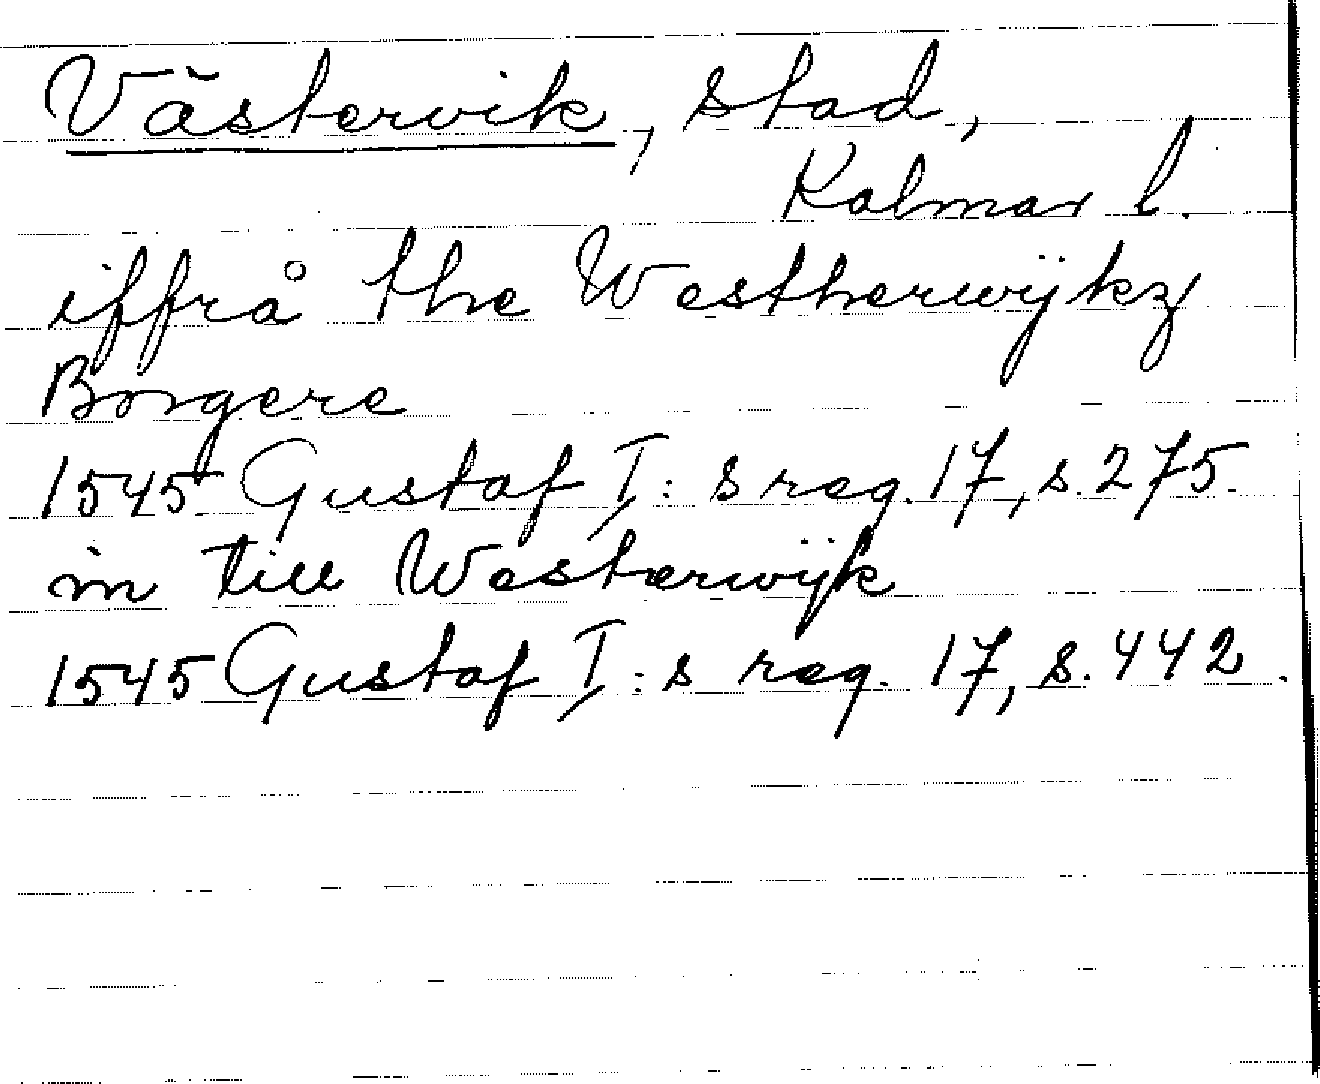 Västervik, stad,
Kalmar l.
iffrå the Westherwÿkz
Borgere
1545 Gustaf I:s reg. 17, s. 275.
in till Westerwÿk
1545 Gustaf I:s reg. 17, s. 442.